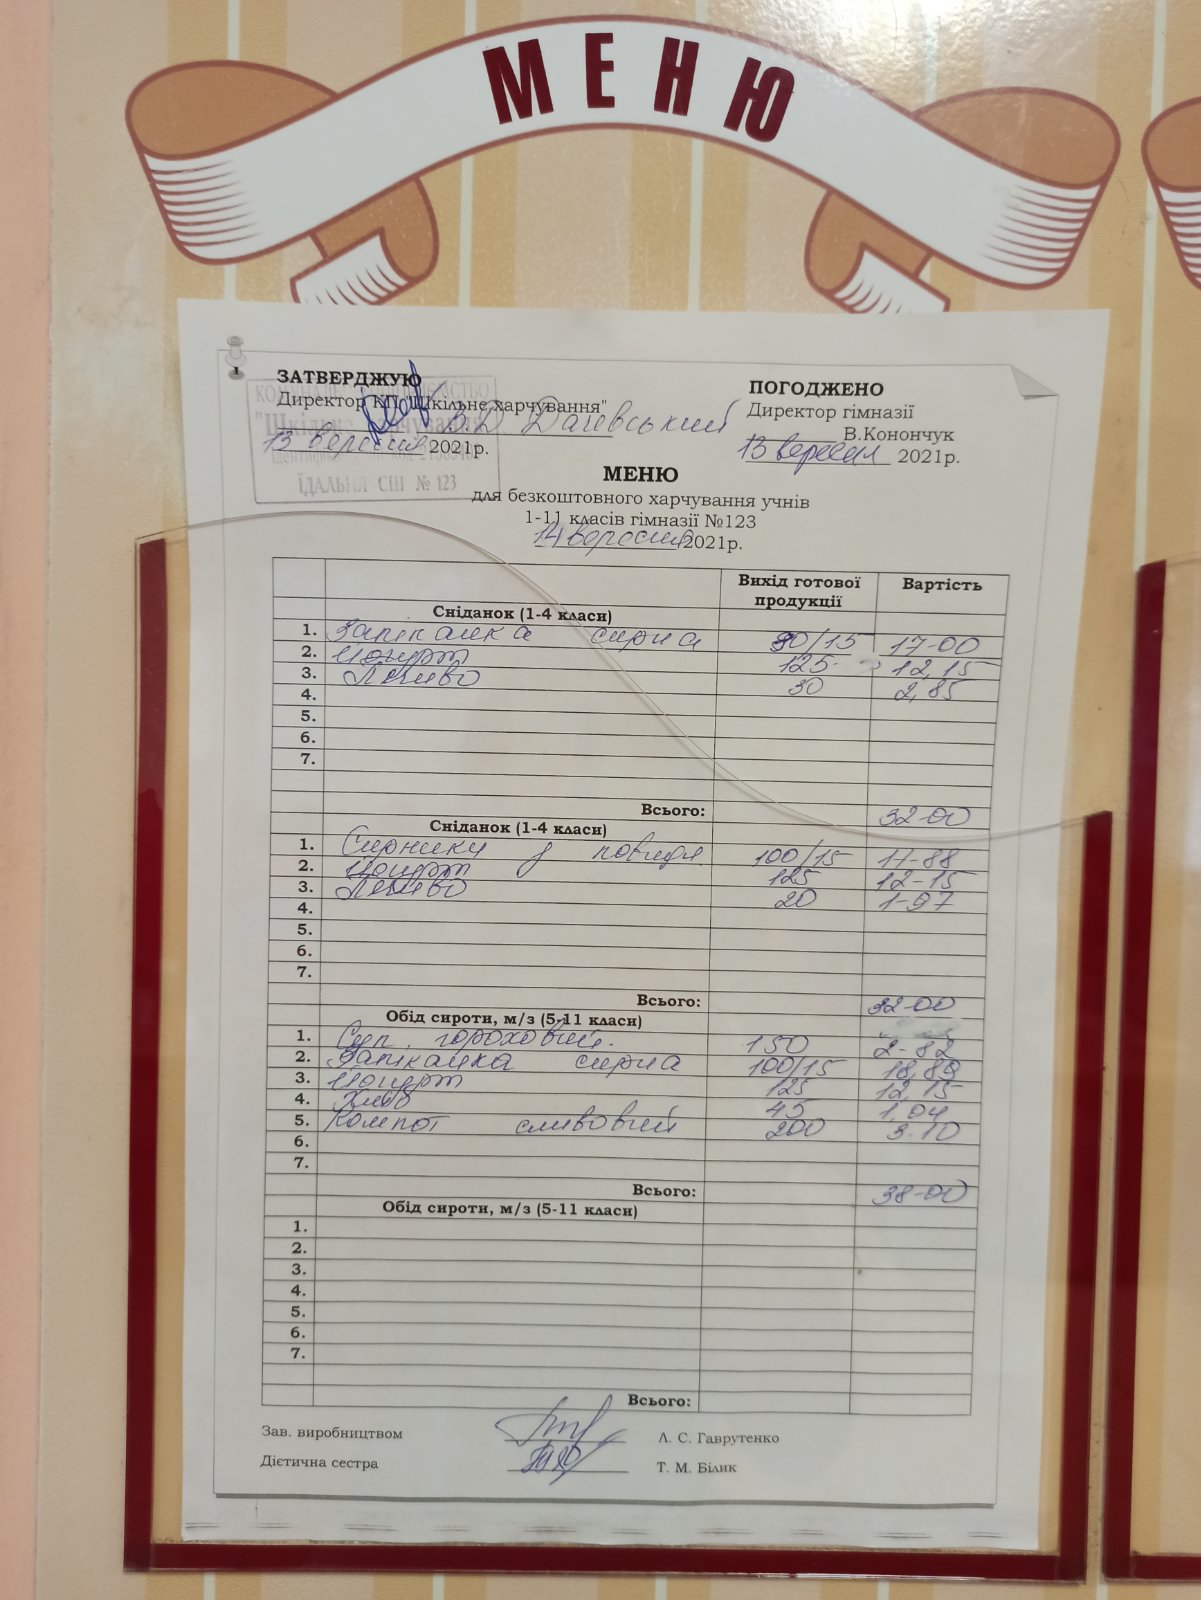 МЕНЮ
ЗАТВЕРДЖУЮ
Директор КП "Шкільне харчування"
В.Д. Дачевський
13 вересня 2021р.
ЇДАЛЬНЯ СШ № 123
ПОГОДЖЕНО
Директор гімназії
В.Конончук
13 вересня 2021р.
МЕНЮ
для безкоштовного харчування учнів
1-11 класів гімназії №123
14 вересня 2021р.
Вихід готової продукції Вартість
Сніданок (1-4 класи)
1. Запіканка сирна 90/15 17-00
2. Йогурт 125 12,15
3. Печиво 30 2,85
4.
5.
6.
7.
Всього: 32-00
Сніданок (1-4 класи)
1. Сирники з повидл. 100/15 17-88
2. Йогурт 125 12-15
3. Печиво 20 1-97
4.
5.
6.
7.
Всього: 32-00
Обід сироти, м/з (5-11 класи)
1. Суп гороховий. 150 2-82
2. Запіканка сирна 100/15 18,89
3. Йогурт 125 12,15
4. Хліб 45 1,04
5. Компот сливовий 200 3-10
6.
7.
Всього: 38-00
Обід сироти, м/з (5-11 класи)
1.
2.
3.
4.
5.
6.
7.
Всього:
Зав. виробництвом Л. С. Гаврутенко
Дієтична сестра Т. М. Білик